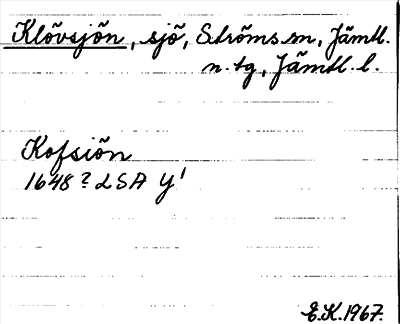 Klövsjön, sjö, Ströms sn, Jämtl.
n. tg, Jämtl. l.
Kofsiön
1648? LSA Y'
E.K. 1967.